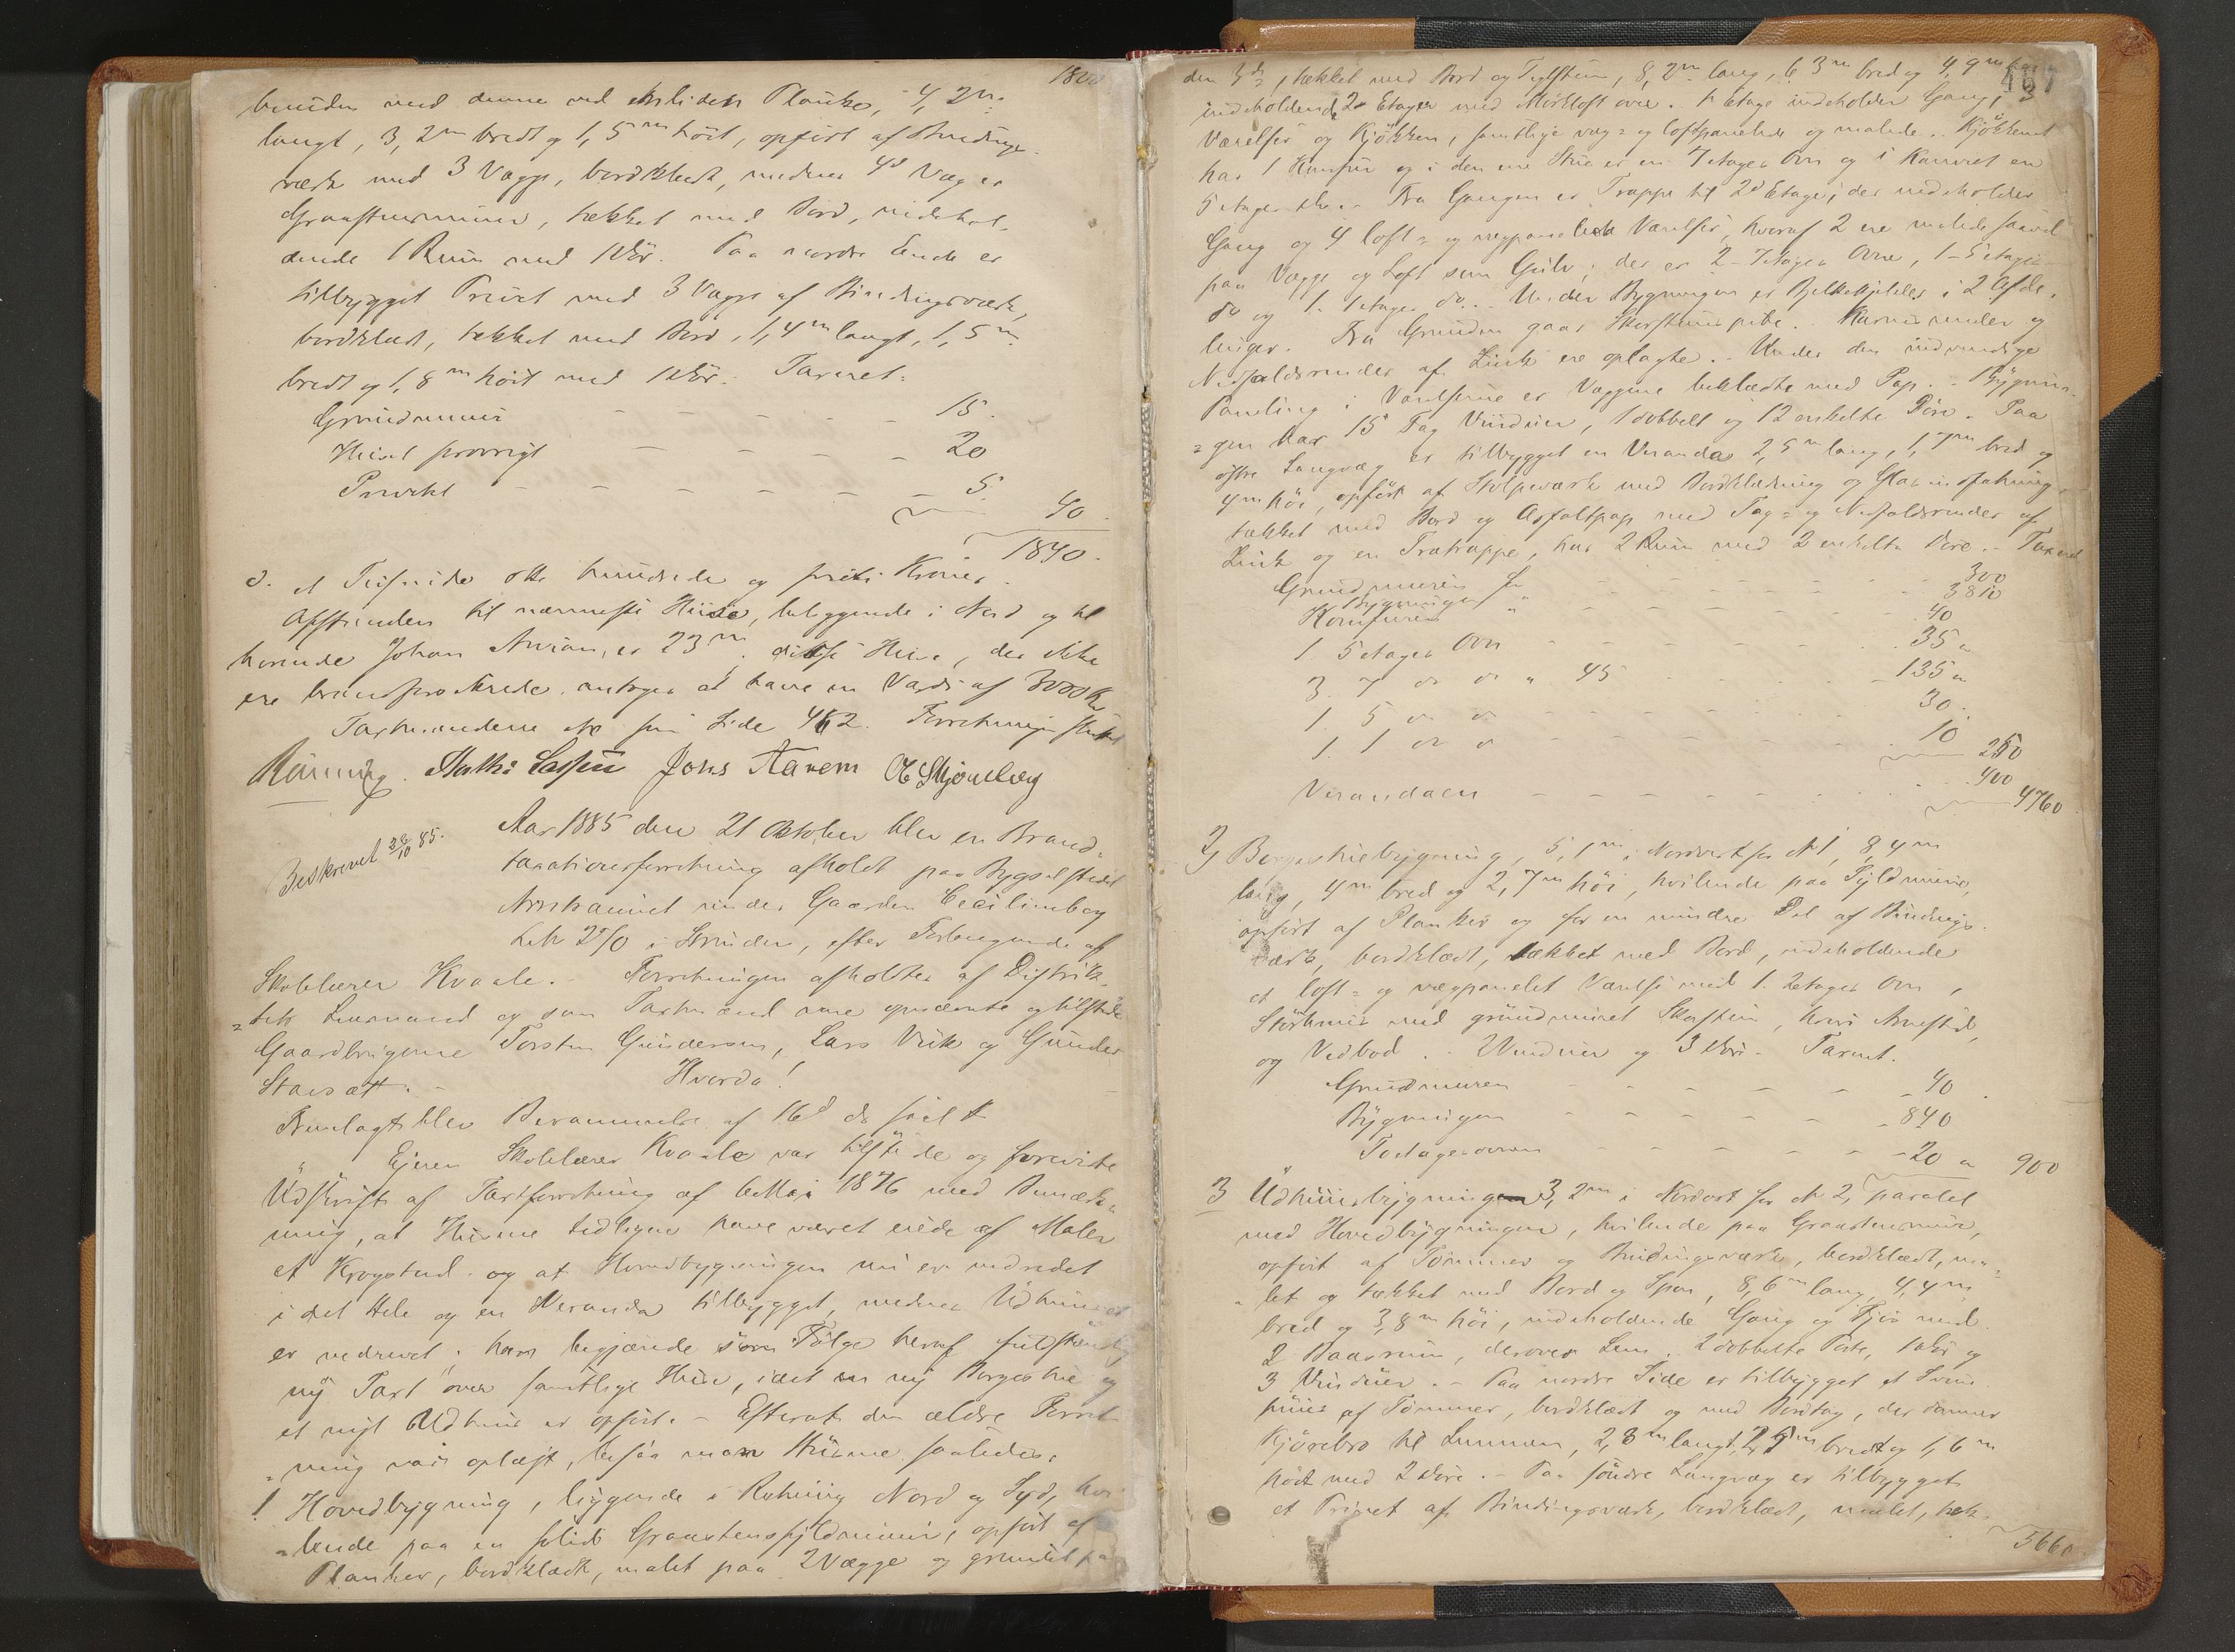 1800
bunden med denne ved Planke, 4,2m
langt, 3,2m bredt og 1,5m höit, opfört af Bindings-
værk med 3 Vægge, bordklædt, medens 4d Væg er
Graastensmuur, tækket med Bord, indehol-
dende 1 Rum med 1 Dör. Paa nordre Ende er
tilbygget Privet med 3 Vægge af Bindingsværk,
bordklædt, tækket med Bord, 1,4m langt, 1,5m
bredt og 1,8m höit med 1 Dör. Taxeret:
Grundmuur - - - - 15.
Huset forövrigt - - - - 20
Privetet - - - - - - 5.
40.
1840.
d. et Tusinde otte hundrede og förti Kroner.
Afstanden til nærmeste Huse, beliggende i Nord og til
hörende Johan er 23m. disse Huse, der ikke
ere brandforsikrede antages at have en Værdi af 3000 Kr
Taxtmændene se side 462. Forretningen sluttet
Rönning. Mathi Lassen Johs Aavern O Skjönberg
Beskrevet 28/10 85.
Aar 1885 den 21 Oktober blev en Brand-
taxationsforretning afholdt paa Bygselstedet
under Gaarden Cecilienborg
Let 25/0 i Strinden, efter Forlangende af
Skolelærer Kvaale. - Forretningen afholdtes af Distrik-
=tets Lensmand og som Taxtmænd vare opnævnte og tilstede
Gaardbrugerne Torsten Gundersen, Lars Vuk og Gunder
Stavsæt. - Hvorda!
Fremlagt blev Berammelse af 16d ds saal
Ejeren Skolelærer Kvaale var tilstede og foreviste
Udskrift af Taxtforretning af 6 Maj 1876 med Bemærk-
ning, at Husene tidligere have været eiede af Maler
A Krogstad og at Hovedbygningen nu er indredet
i det Hele og en Veranda tilbygget, medens Udhuset
er nedrevet; han begjærede som Fölge heraf fuldstændig
ny Taxt over samtlige Huse, idet en ny Borgestue og
et nyt Udhuus er opfört. - Efterat den ældre Forret-
=ning var oplæst, besaa man Husene saaledes:
1 Hovedbygning, liggende i Retning Nord og Syd, hvi-
=lende paa en solid Graastensfyldmuur, opfört af
Planker, bordklædt, malet paa 2 Vægge og grundet paa
487
den 3die, tækket med Bord og Teglsteen, 8,2m lang, 6,3m bred og 4,9m
indeholdende 2 Etager med Mörkloft over. 1 Etage indeholder Gang, 3
Værelser og Kjökken, samtlige væg- og loftpanelede og malede. Kjökkenet
har 1 Komfur og i den ene Stue er en 7 etages Ovn og i Kamret en
5 etages do. - Fra Gangen er Trappe til 2d Etage, der indeholder
Gang og 4 loft- og vægpanelede Værelser, hvoraf 2 ere malede saavel
paa Vægge og Loft som Gulv; der er 2 - 7 etages Ovne, 1 - 5 etages
do og 1. 1 etages do. - Under Bygningen er Bjelkekjelder i 2 Afde-
linger. Fra Grunden gaar Skorstenspibe. Karnisrender og
Nedfaldsrender af Zink ere oplagte. - Under den indvendige
Panling i Værelserne er Væggene beklædte med Pap. - Bygnin-
=gen har 15 Fag Vinduer, 1 dobbelt og 12 enkelte Döre. Paa
östre Langvæg er tilbygget en Veranda 2,5m lang, 1,7m bred og
4m höi, opfört af Stolpeværk med Bordklædning og Glasindfatning,
tækket med Bord og Asfaltpap med Tag- og Nedfaldsrender af
Zink og en Trætrappe, har 2 Rum med 2 enkelte Döre. - Taxeret
Grundmuren for - - - - - 300
Bygningen " - - - - - 3810
Komfuren " - - - - - 40
1. 5 etages Ovn - - - - 35 "
3. 7 do do " 45 - - - 135 "
1 5 do do - - - - 30.
1. 1 do do - - - - 10
250
Verandaen - - - - - 400
4760
2, Borgestuebygning, 5,1m i Nordvest for No 1, 8,4m
lang, 4m bred og 2,7m höi, hvilende paa Fyldmuur,
opfört af Planker og for en mindre Del af Bindings-
værk, bordklædt, tækket med Bord, indeholdende
et loft- og vægpanelet Værelse med 1. 2 etages Ovn,
med grundmuret Skorsten, hvori Arnested,
og Vedbod. - Vinduer og 3 Döre. Taxeret.
Grundmuren - - - - 40
Bygningen - - - - 840
Toetagesovnen - - - - 20 " 900
3 Udhuusbygningen 3,2m i Nordost for No 2, paralel
med Hovedbygningen, hvilende paa Graastensmuur,
opfört af Tömmer og Bindingsværk, bordklædt, ma-
=let og tækket med Bord og Spon, 8,6m lang, 4,4m
bred og 3,8m höi, indeholdende Gang og Fjös med
2 Baasrum, derover Lem. 2 dobbelte Porte, 1 Dör og
3 Vinduer. - Paa nordre Side er tilbygget et Svine
huus af Tömmer, bordklædt og med Bordtag, der danner
Kjörebro til Lemmen, 2,8m langt, 2,5m bredt og 1,6m
höit med 2 Döre. - Paa söndre Langvæg er tilbygget
et Privet af Bindingsværk, bordklædt, malet, tæk-
5660